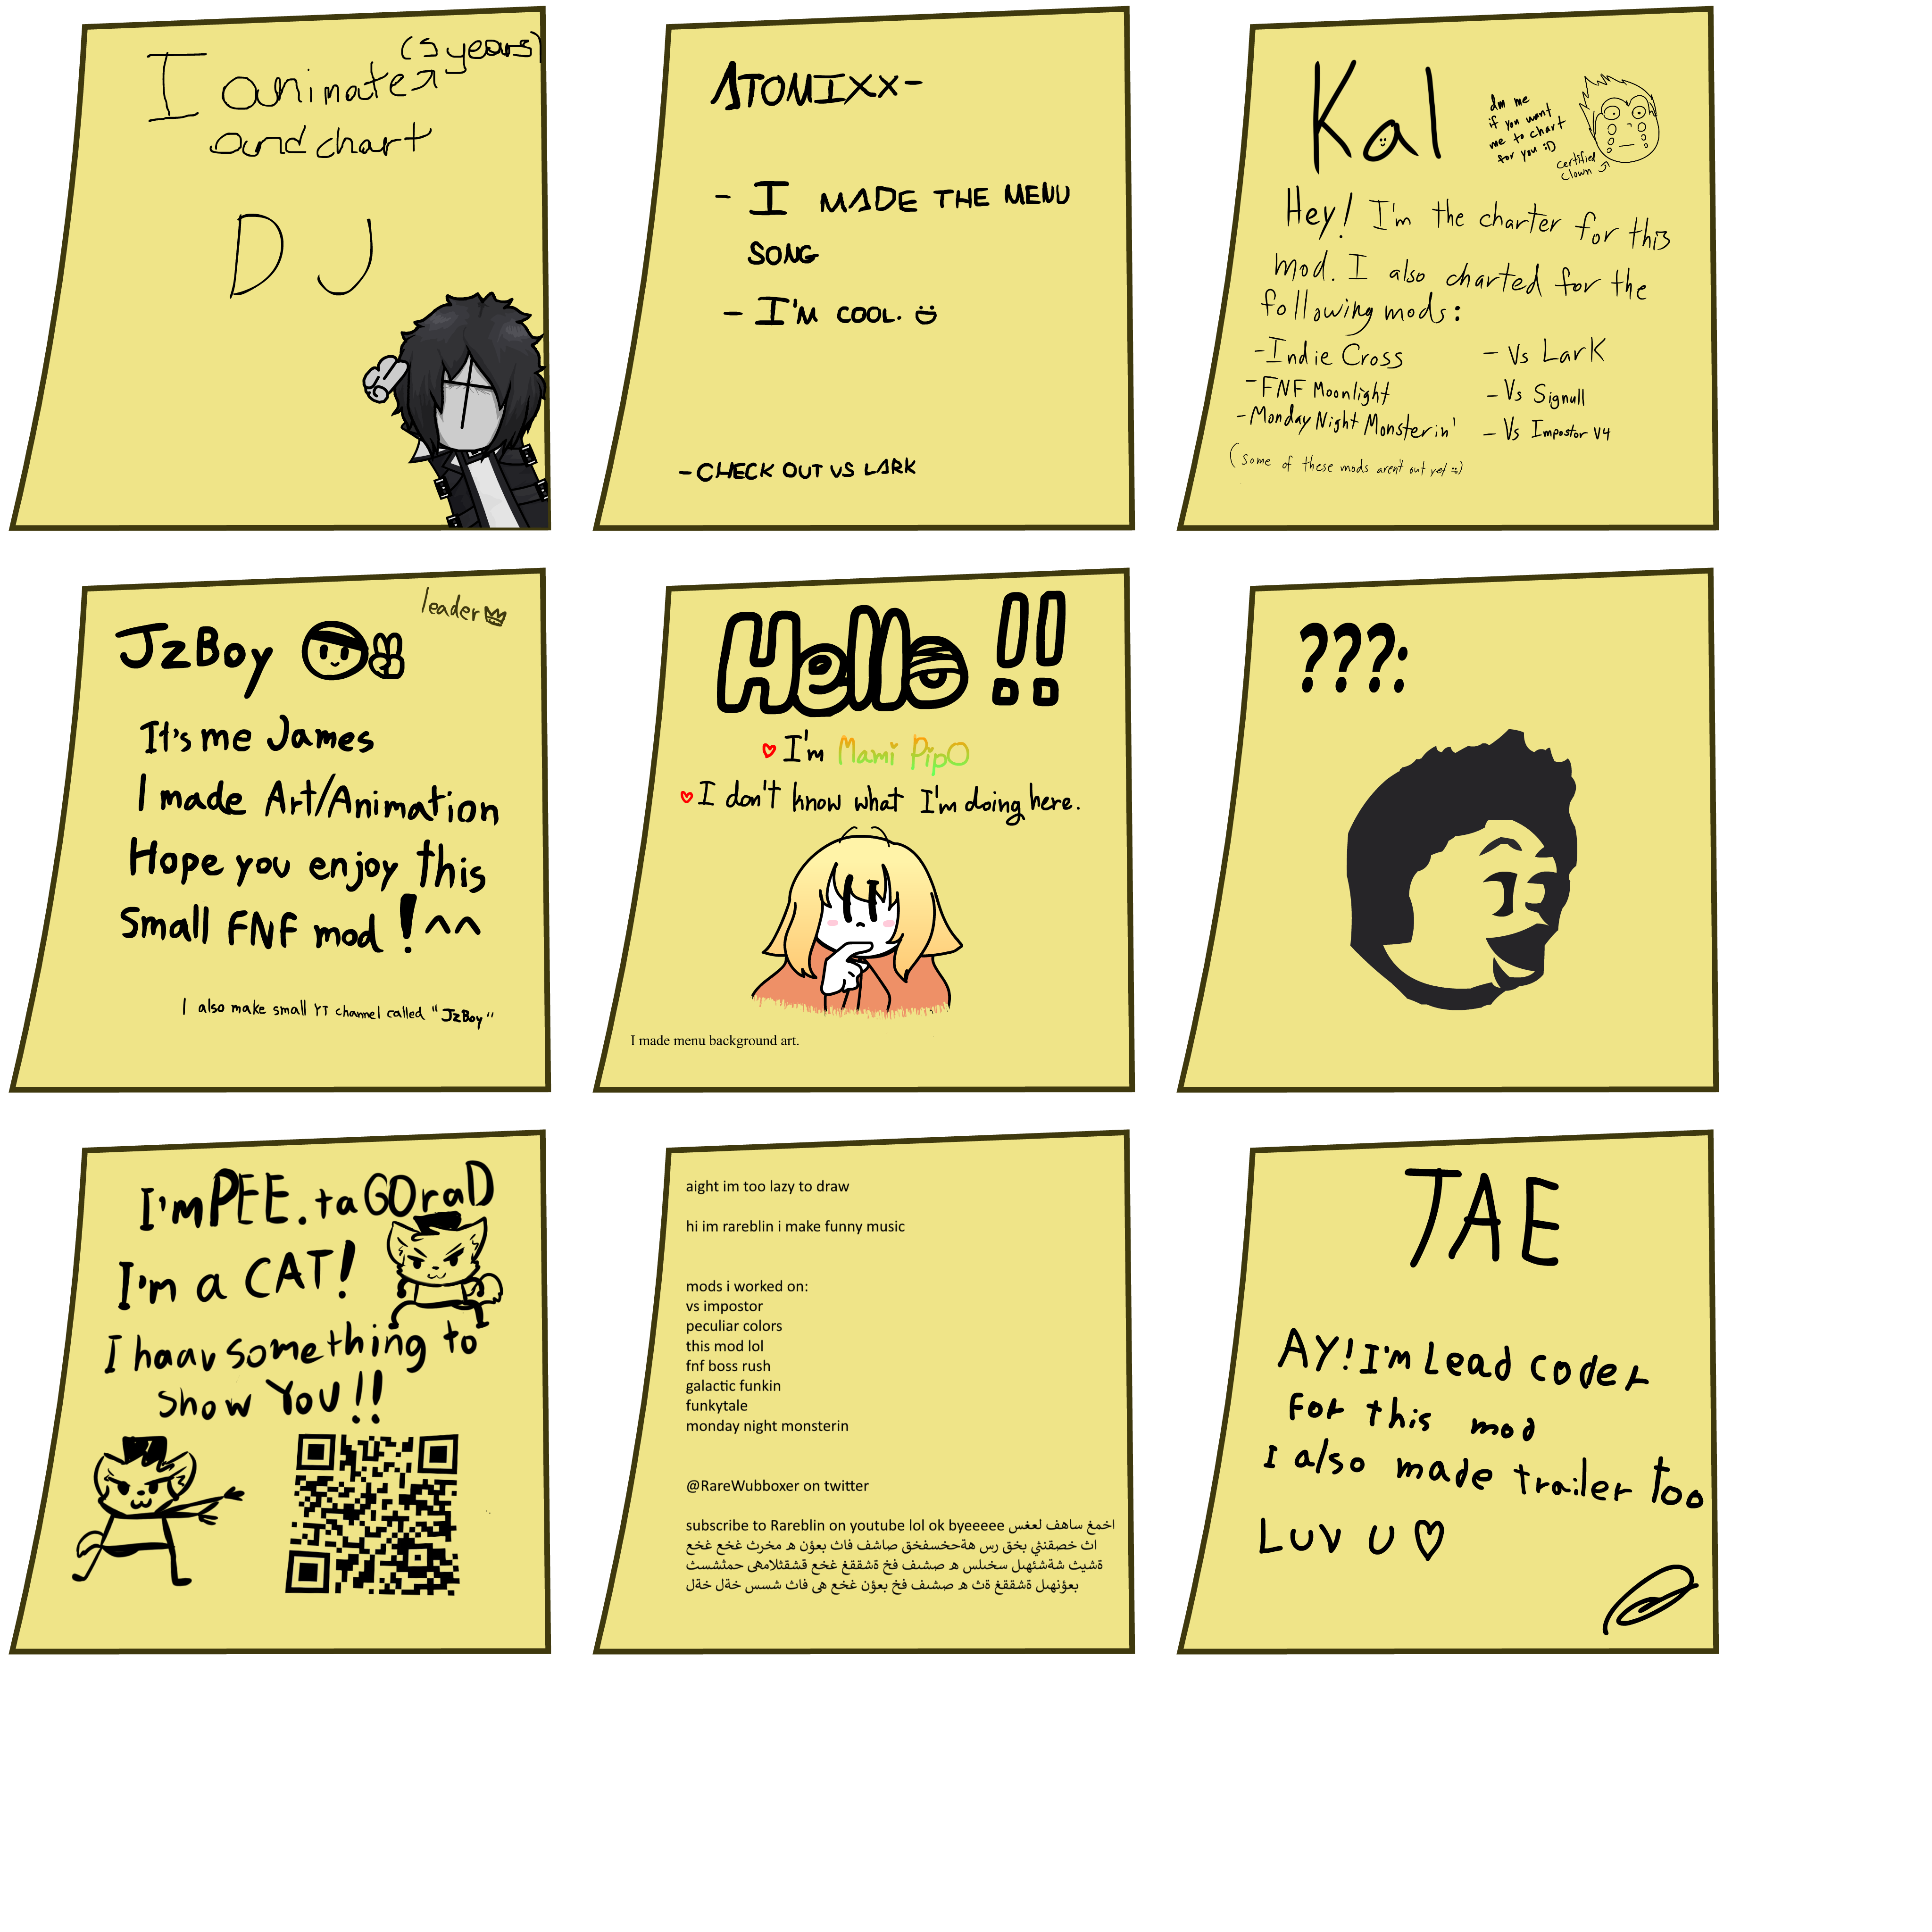 (5 years)
I animate
and chart
DJ
ATOMIXX-
- I MADE THE MENU
SONG
- I'M COOL.
- CHECK OUT VS LARK
Kal
dm me
if you want
me to chart
for you :D
certified
clown
Hey! I'm the charter for this
mod. I also charted for the
following mods:
- Indie Cross
- FNF Moonlight
- Monday Night Monsterin'
- Vs Lark
- Vs Signull
- Vs Impostor V4
(some of these mods aren't out yet =))
leader
JzBoy
It's me James
I made Art/Animation
Hope you enjoy this
small FNF mod ! ^^
I also make small YT channel called "JzBoy"
Hello !!
I'm Mami PipO
I don't know what I'm doing here.
I made menu background art.
???:
I'm PEE.taGOraD
I'm a CAT!
I haav something to
show YoU!!
aight im too lazy to draw
hi im rareblin i make funny music
mods i worked on:
vs impostor
peculiar colors
this mod lol
fnf boss rush
galactic funkin
funkytale
monday night monsterin
@RareWubboxer on twitter
subscribe to Rareblin on youtube lol ok byeeeee اخمغ ساهف لعغس
اث خصقنثي بخق رس هةحخسفخق صاشف فاث بعؤن ه مخرث غخع غخع
ةشيث شةشئهىل سخىلس ه صشىف فخ ةشققغ غخع قشقثلامهى حمثشسث
بعؤنهىل ةشققغ ةث ه صشىف فخ بعؤن غخع هى فاث شسس خةل خةل
TAE
AY! I'm Lead coder
For this mod
I also made trailer too
LUV U ♡